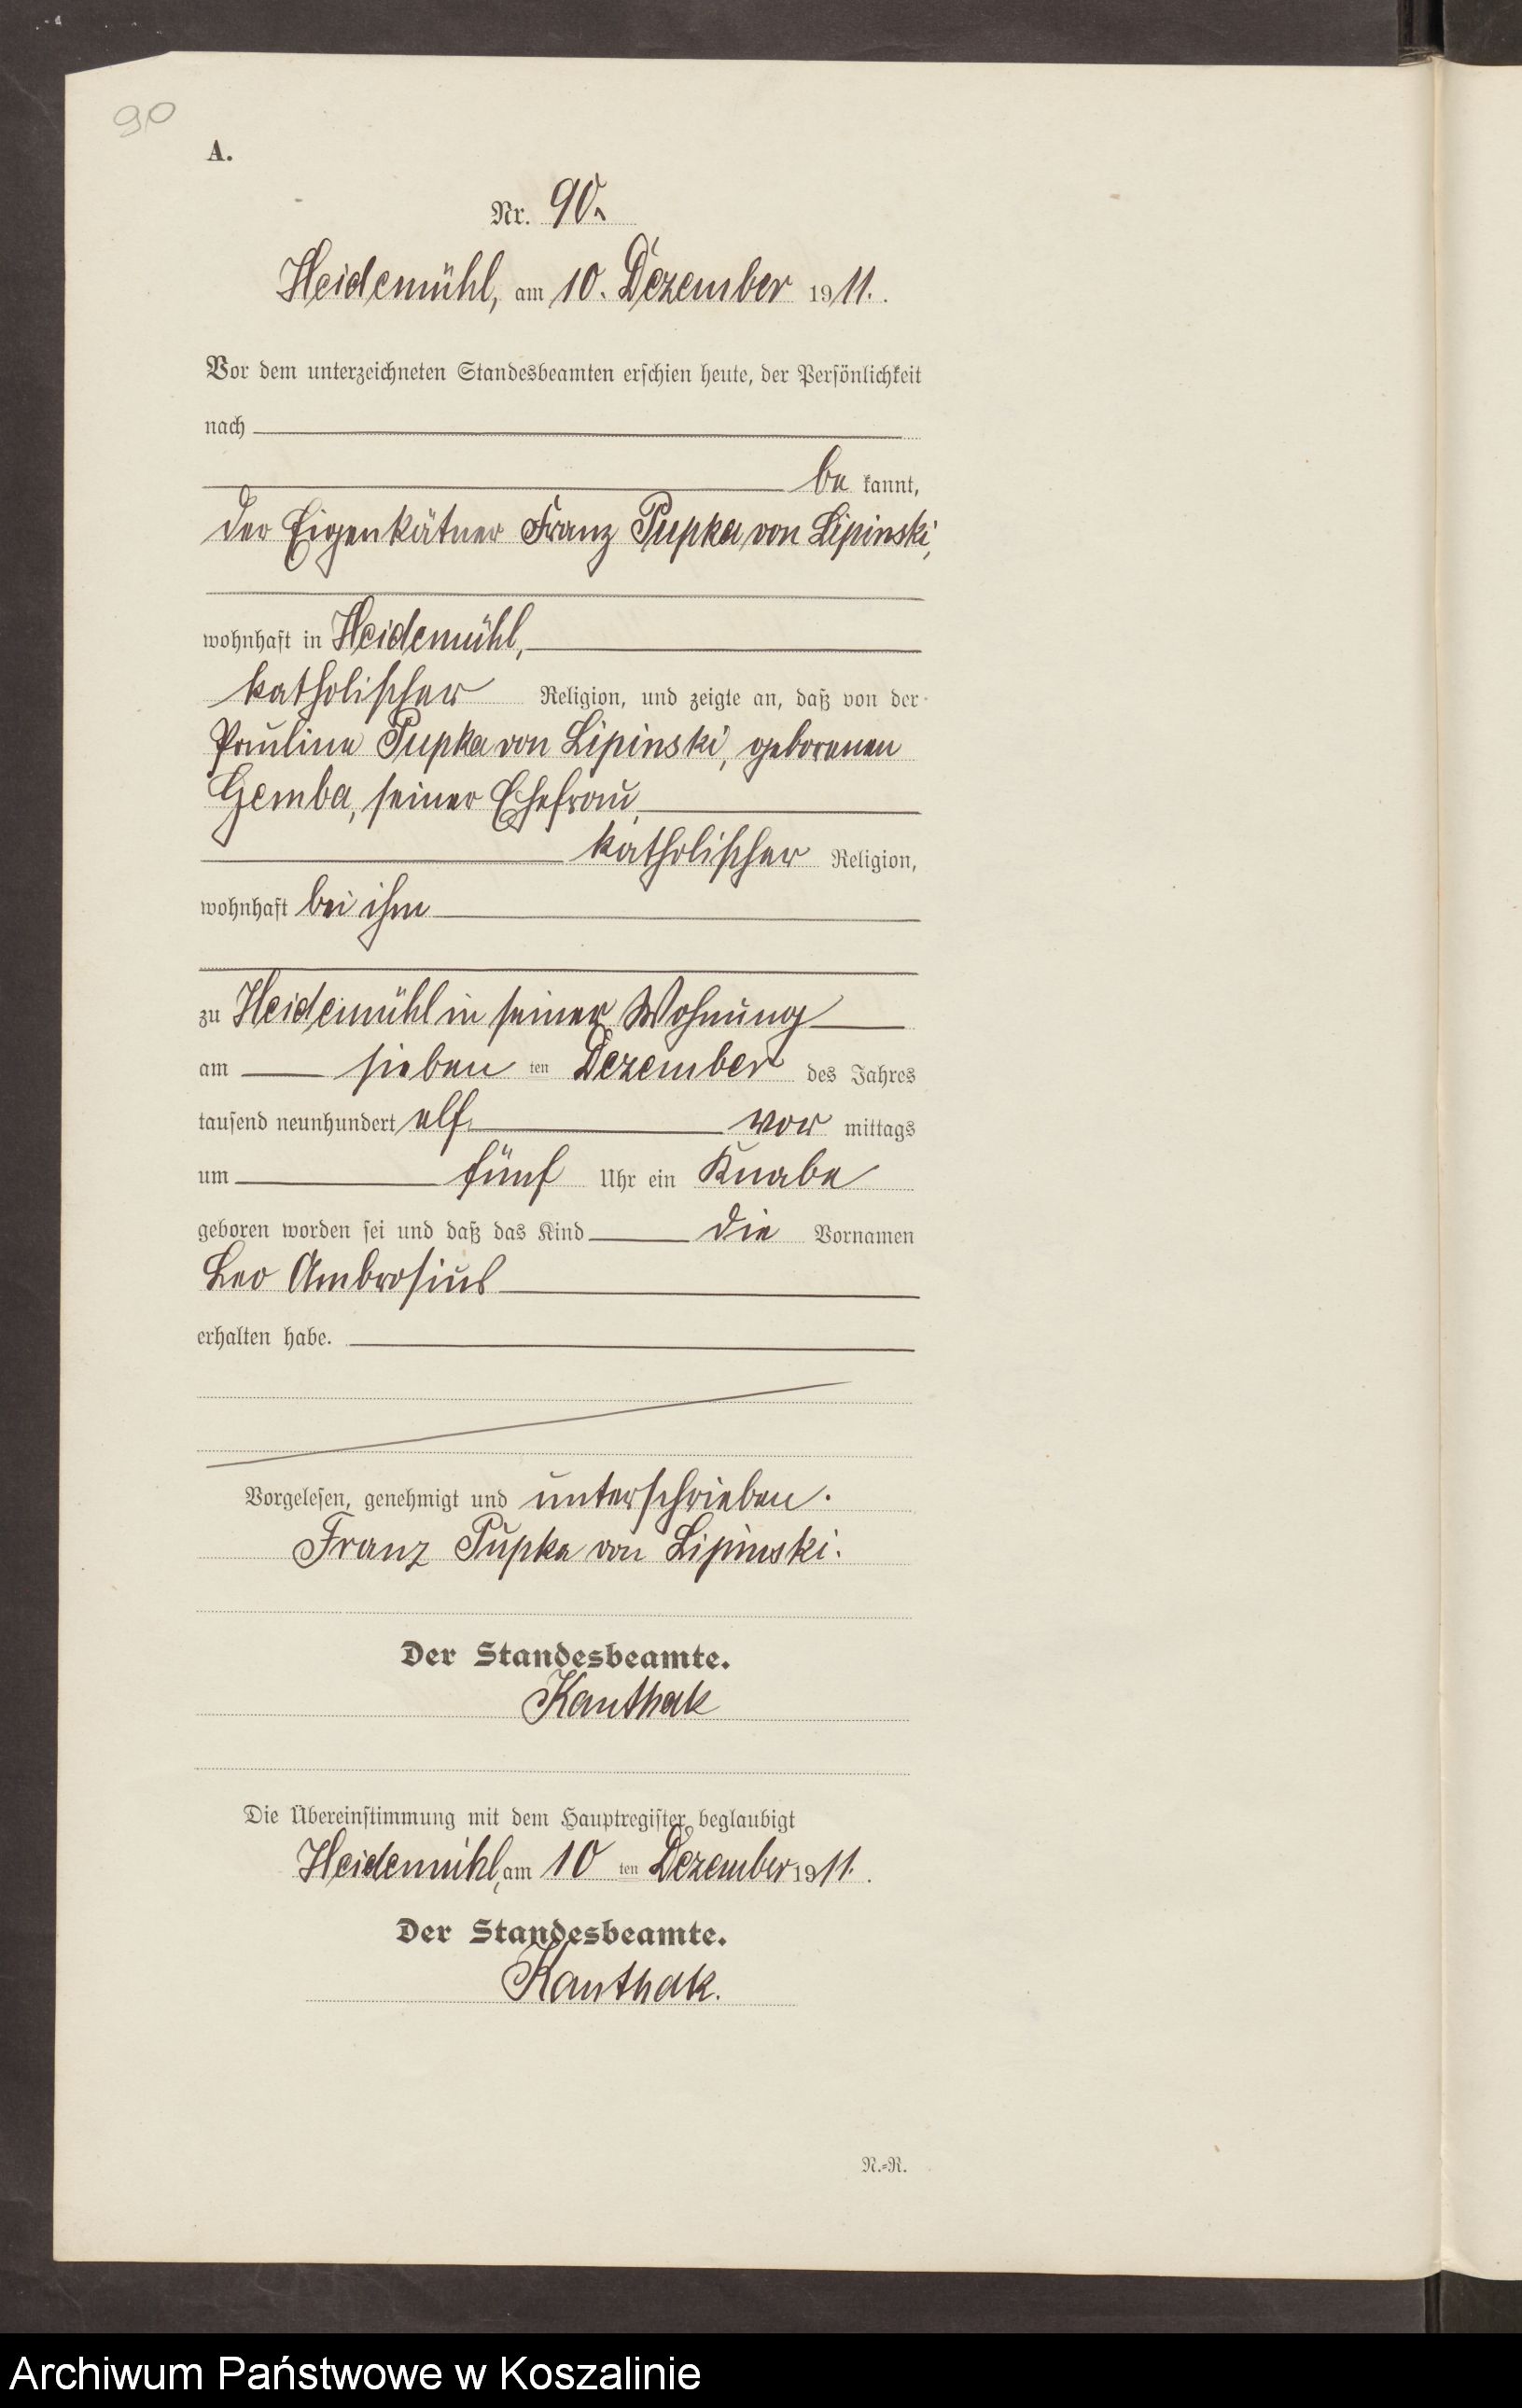 90
A.
Nr. 90.
Heidemühl, am 10. Dezember 1911.
Vor dem unterzeichneten Standesbeamten erschien heute, der Persönlichkeit
nach
be kannt,
der Eigenkätner Franz Pupka von Lipinski,
wohnhaft in Heidemühl,
katholischer Religion, und zeigte an, daß von der
Pauline Pupka von Lipinski, geborenen
Gemba, seiner Ehefrau,
katholischer Religion,
wohnhaft bei ihm
zu Heidemühl in seiner Wohnung
am sieben ten Dezember des Jahres
tausend neunhundert elf vor mittags
um fünf Uhr ein Knabe
geboren worden sei und daß das Kind die Vornamen
Leo Ambrosius
erhalten habe.
Vorgelesen, genehmigt und unterschrieben.
Franz Pupka von Lipinski.
Der Standesbeamte.
Kanthak
Die Übereinstimmung mit dem Hauptregister beglaubigt
Heidemühl, am 10 ten Dezember 1911.
Der Standesbeamte.
Kanthak.
N.=R.
Archiwum Państwowe w Koszalinie